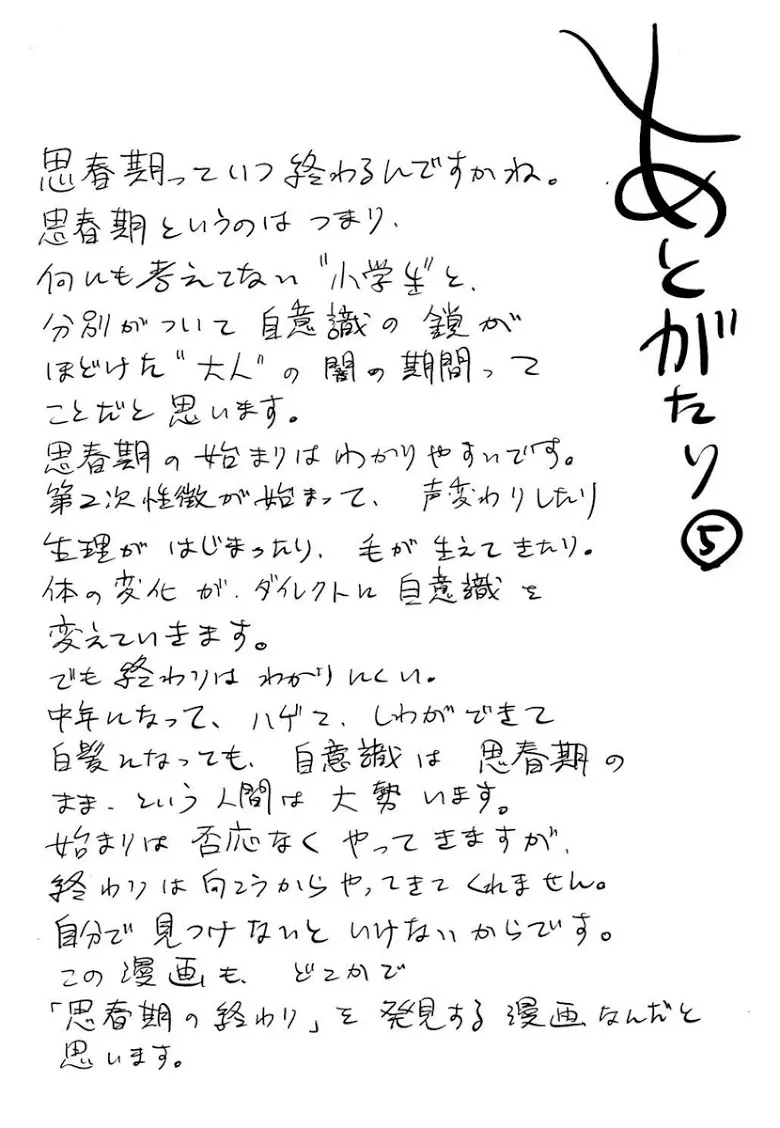 あとがたり⑤
思春期っていつ終わるんですかね。
思春期というのは つまり、
何にも考えてない“小学生”と、
分別がついて 自意識の 鎖が
ほどけた“大人”の 闇の 期間って
ことだと 思います。
思春期の 始まりは わかりやすいです。
第2次性徴が始まって、 声変わりしたり
生理が はじまったり、 毛が 生えて きたり。
体の 変化 が、ダイレクトに 自意識 を
変えていきます。
でも 終わりは わかりにくい。
中年になって、 ハゲて、 しわが できて
白髪になっても、 自意識 は 思春期の
まま、という 人間は 大勢 います。
始まりは 否応なく やって きますが、
終わりは向こうからやってきて くれません。
自分で 見つけ ないと いけないからです。
この 漫画 も、 どこかで
「思春期の終わり」を 発見する 漫画 なんだと
思います。